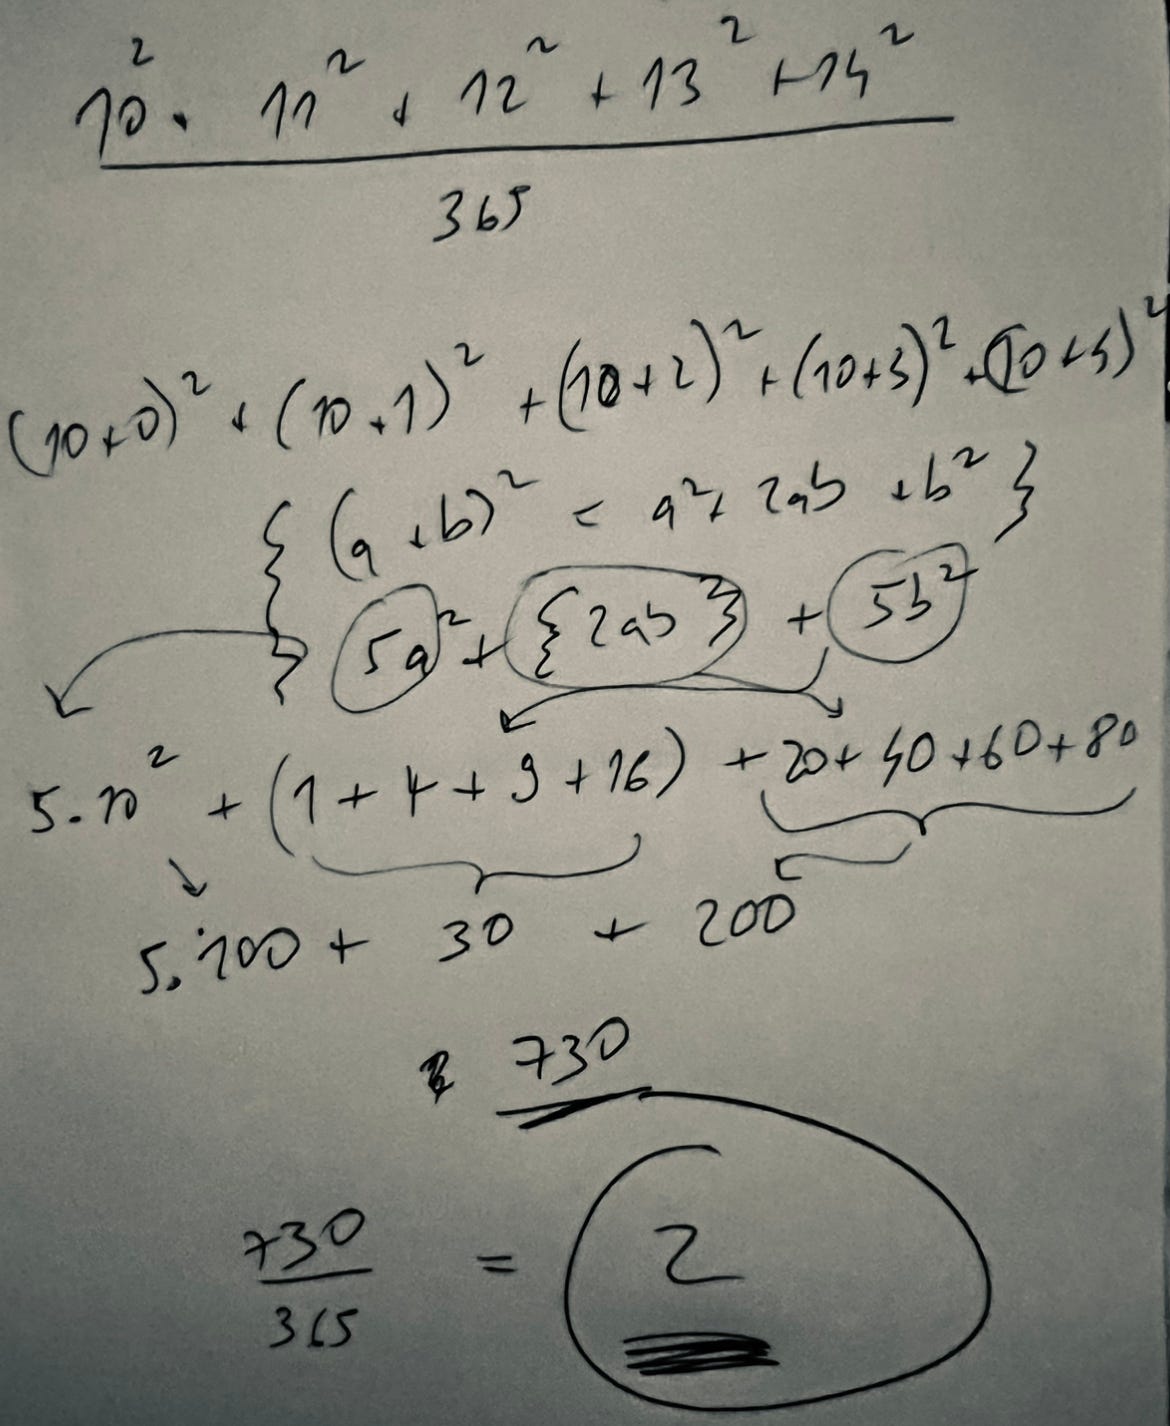 10² + 11² + 12² + 13² + 14²
365
(10+0)² + (10+1)² + (10+2)² + (10+3)² + (10+4)²
{ (a+b)² = a² + 2ab + b² }
5a² + {2ab} + 5b²
5·10² + (1 + 4 + 9 + 16) + 20 + 40 + 60 + 80
5·100 + 30 + 200
730
730
365
= 2